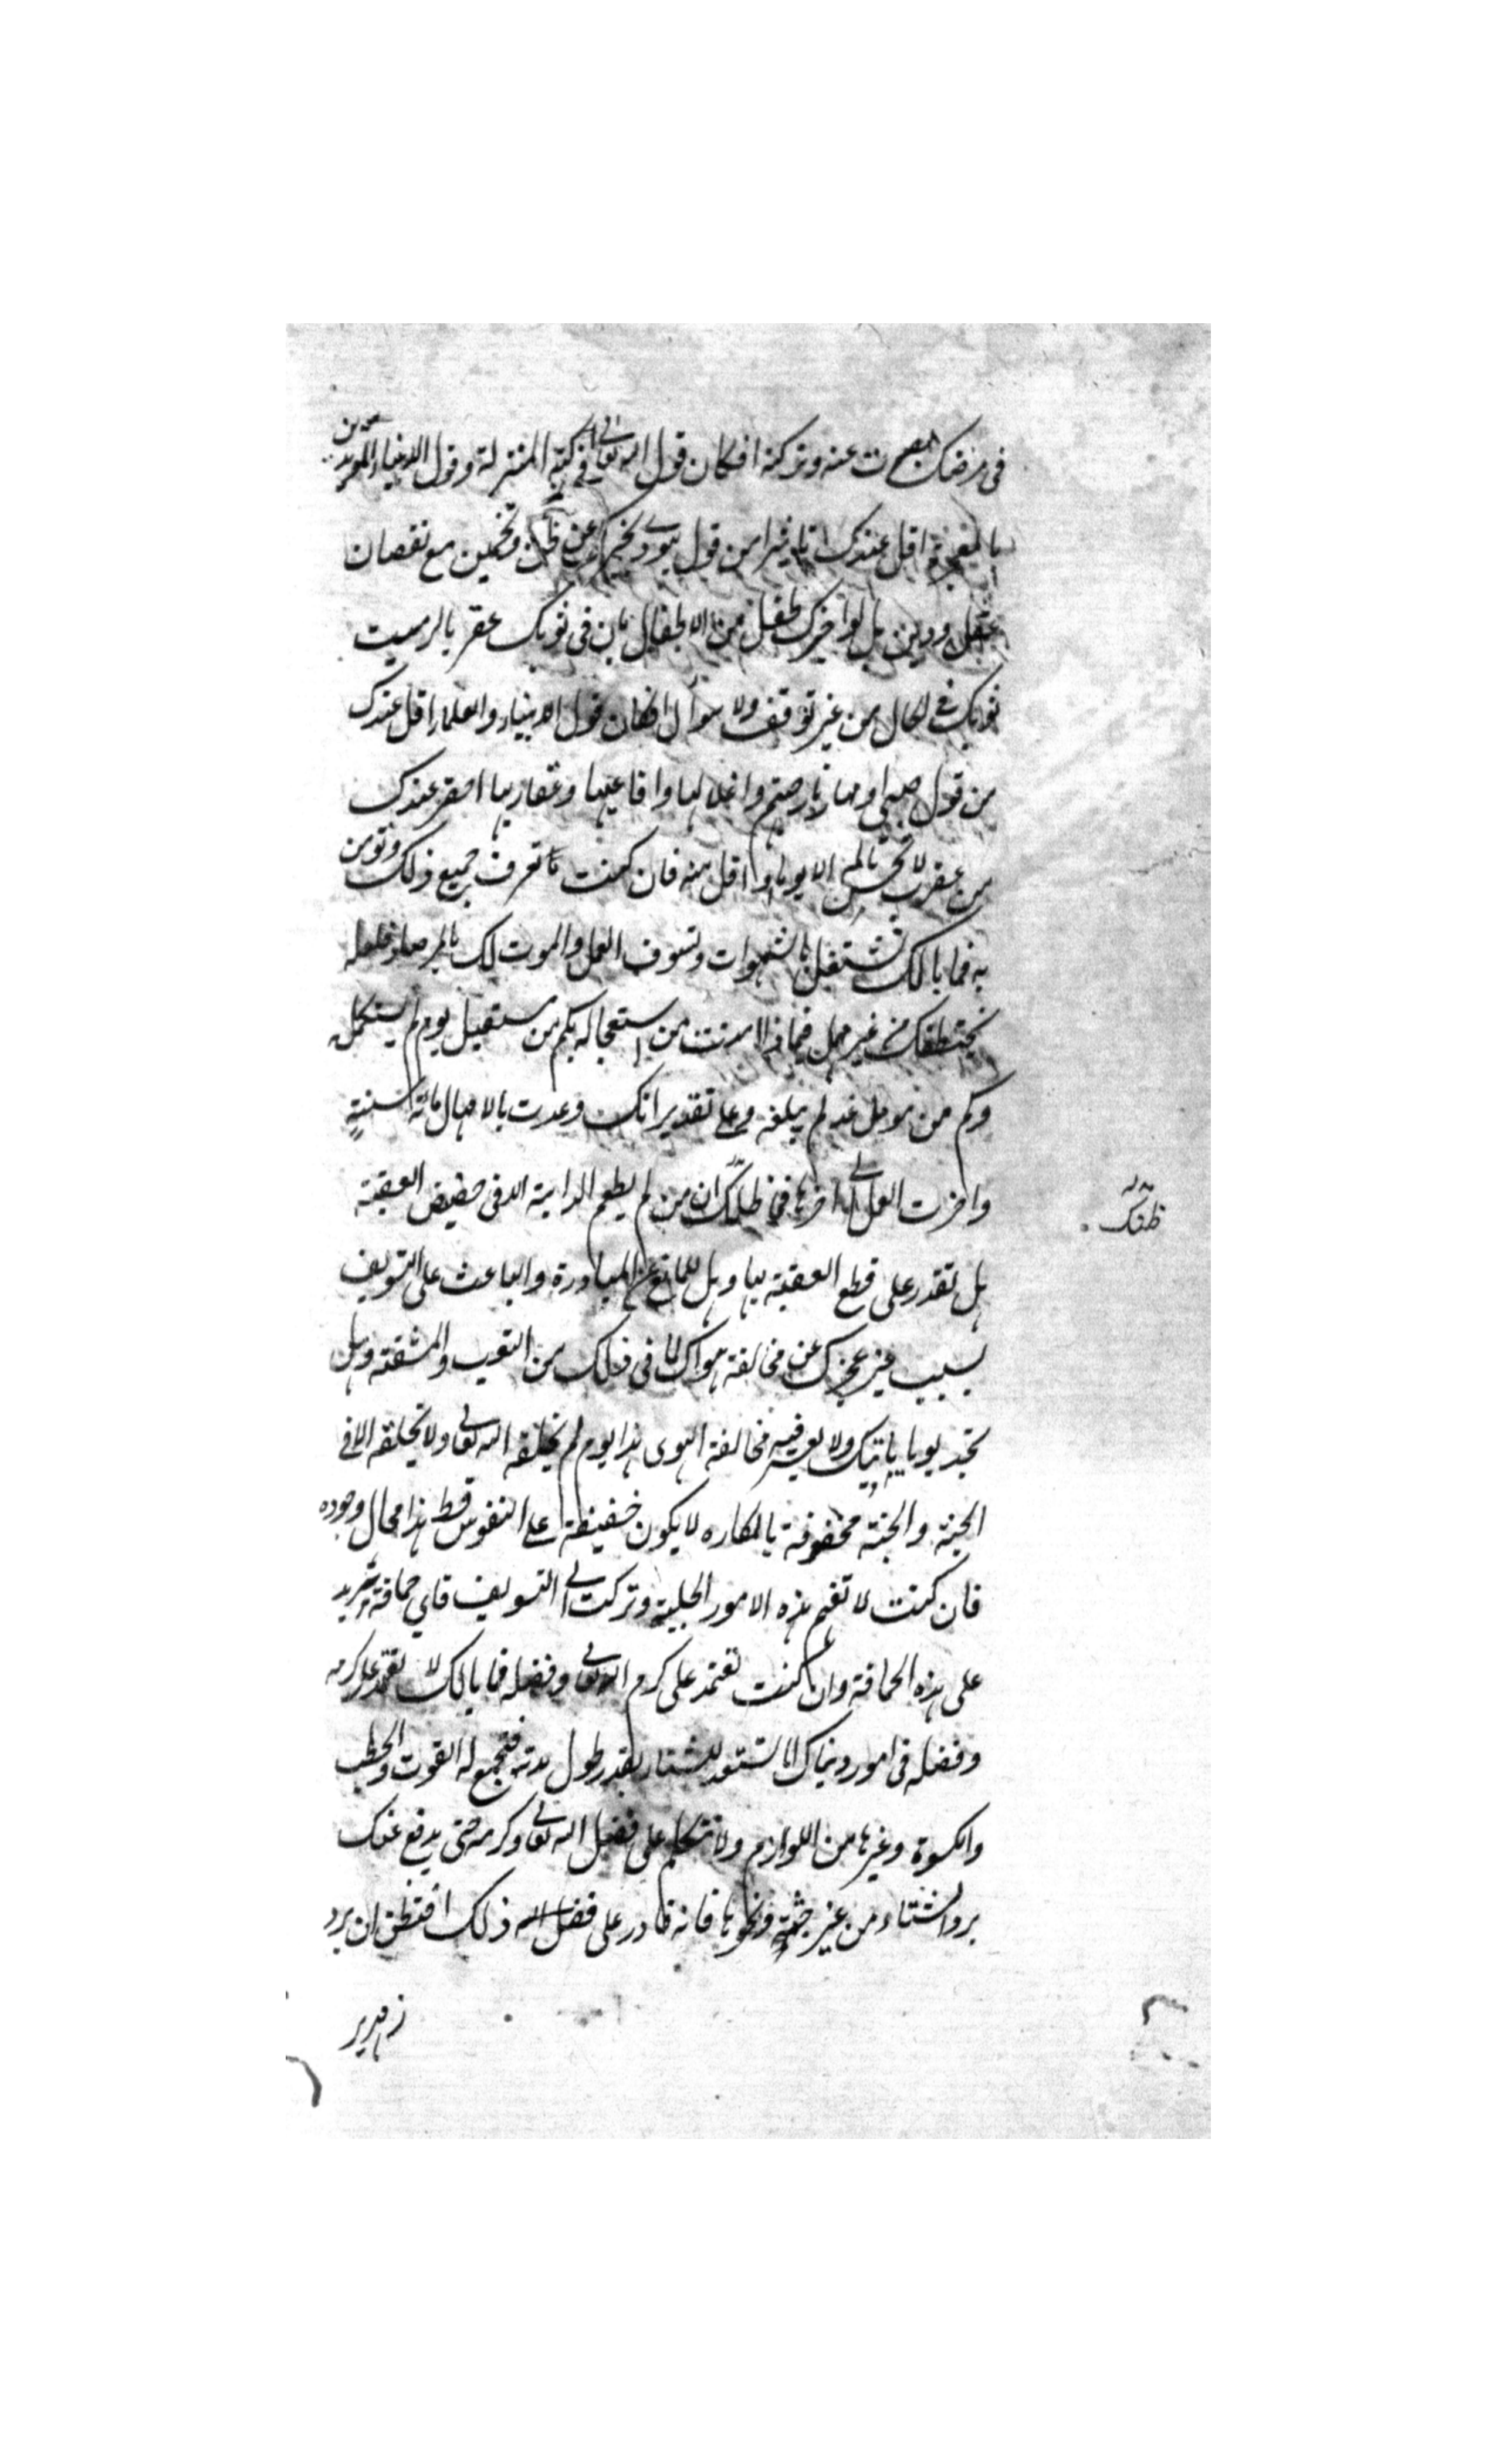 في مرضك لصبرت عنه وتركته افكان قول الله تعالى في كتبه المنزلة وقول الانبياء المؤيدين
بالمعجزة اقل عندك تاثيرا من قول يهودي يخبرك عن ظن وتخمين مع نقصان
عقل ودين بل لو اخبرك طفل من الاطفال بان في ثوبك عقربا لرميت
ثوبك في الحال من غير توقف ولا سوال افكان قول الانبياء والعلماء اقل عندك
من قول صبي او صار نار جهنم واغلالها وافاعيها وعقاربها احقر عندك
من عقرب لا تحس بالمه الا يوما او اقل منه فان كنت تعرف جميع ذلك وتومن
به فما بالك تشتغل بالشهوات وتسوف العمل والموت لك بالمرصاد فلعله
يختطفك من غير مهل فبماذا امنت من استعجاله فكم من مستقبل يوم لم يستكمله
وكم من مؤمل غد لم يبلغه وعلى تقدير انك وعدت بالامهال مائة سنة
واخرت العمل الى اخرها فما ظنك ان من لم يطعم الدابة الا في حضيض العقبة
هل تقدر على قطع العقبة بها وهل المانع عن المبادرة والباعث على التسويف
بسبب غير عجزك عن مخالفة هواك لما في ذلك من التعب والمشقة وهل
تجد يوما ياتيك ولا يعسر فيه مخالفة الهوى هذا يوم لم يخلقه الله تعالى ولا يخلقه الا في
الجنة والجنة محفوفة بالمكاره لا يكون خفيفة على النفوس قط هذا محال وجوده
فان كنت لا تفهم هذه الامور الجلية وتركت الى التسويف فاي حماقة تزيد
على هذه الحماقة وان كنت تعتمد على كرم الله تعالى وفضله فما بالك لا تعتمد على كرمه
وفضله في امور دنياك اما تستعد للشتاء بقدر طول مدته فتجمع له القوت والحطب
والكسوة وغيرها من اللوازم ولا تتكل على فضل الله تعالى وكرمه حتى يدفع عنك
برد الشتاء من غير جبة ونحوها فانه قادر على ذلك افتظن ان برد
زمهرير